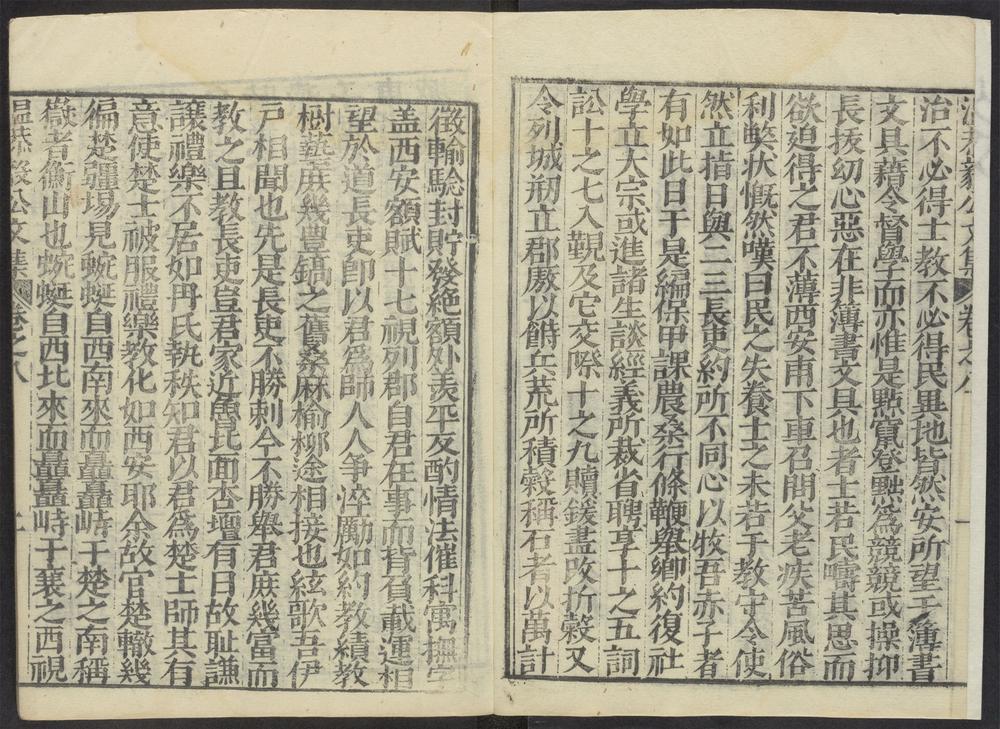 治不必得士教不必得民異地皆然安所望于簿書
文具藉令督學而亦惟是點竄登黜爲競競或操抑
長扳幼心惡在非薄書文具也者士若民疇其思而
欲廹得之君不薄西安甫下車召問父老疾苦風俗
利獘状慨然嘆曰民之失養士之未若于教守令使
然立指日與二三長吏約所不同心以牧吾赤子者
有如此日于是編保甲課農桑行條鞭舉郷約復社
學立大宗或進諸生談經義所裁省聘享十之五詞
訟十之七入覲及它交際十之九贖鍰盡改折穀又
令列城剏立郡厫以餙兵荒所積穀稱石者以萬計
徵輸騐封貯發絶額外羡平反酌情法催科寓撫字
盖西安額賦十七視列郡自君在事而背負載運相
望於道長吏卽以君爲師人人争淬勵如約教績教
樹蓺庶幾豊鎬之舊桑麻榆柳途相接也絃歌吾伊
戸相聞也先是長吏不勝刺今不勝舉君庶幾富而
教之且教長吏豈君家近魯比面杏壇有日故耻謙
讓禮樂不居如冉氏執秩知君以君爲楚士師其有
意使楚士被服禮樂教化如西安耶余故官楚轍幾
徧楚疆埸見蜿蜒自西南來而矗矗峙于楚之南稱
嶽者衡山也蜿蜒自西北來而矗矗峙于襄之西視
温恭毅公文集 卷之八